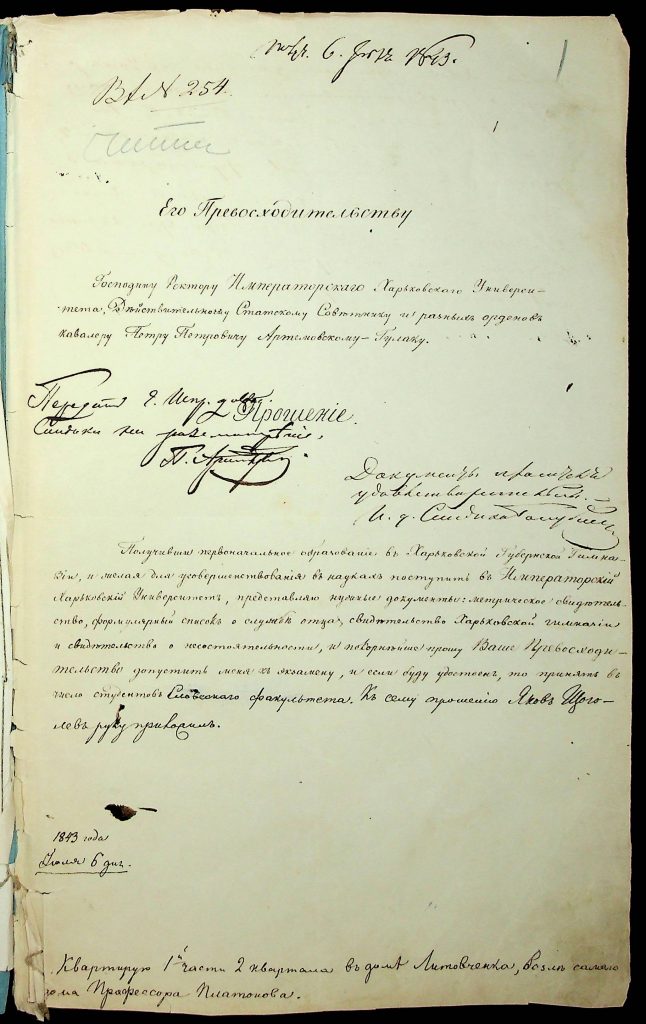 пол. 6 Іюля 1843.
Вх № 254.
Его Превосходительству
Господину Ректору Императорскаго Харьковскаго Универси-
тета, Дѣйствительному Статскому Совѣтнику и разныхъ орденовъ
кавалеру Петру Петровичу Артемовскому-Гулаку.
Прошеніе.
Передать Г. Испр. долж.
Синдика на разсмотрѣніе.
Документы
удовлетворительны.
И. д. Синдика
Получивши первоначальное образованіе въ Харьковской Губернской Гимна-
зіи, и желая для усовершенствованія въ наукахъ поступить въ Императорскій
Харьковскій Университетъ, представляю нужные документы: метрическое свидѣтель-
ство, формулярный списокъ о службѣ отца, свидѣтельство Харьковской гимназіи
и свидѣтельство о несостоятельности, и покорнѣйше прошу Ваше Превосходи-
тельство допустить меня къ экзамену, и если буду удостоенъ, то принять въ
число студентовъ Словеснаго факультета. Къ сему прошенію Яковъ Щого-
левъ руку приложилъ.
1843 года
Іюля 6 дня.
Квартирую 1й части 2 квартала въ домѣ Литовченка, возлѣ самаго
дома Профессора Платонова.